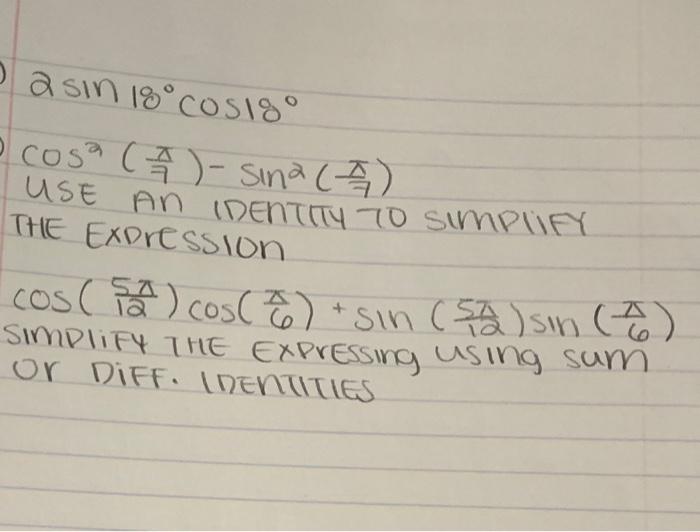 ) 2 sin 18° cos 18°
) cos² (π/7) - sin² (π/7)
USE An IDENTITY TO SIMPLIFY
THE EXPression
cos(5π/12) cos(π/6) + sin (5π/12) sin (π/6)
SIMPLIFY THE EXPressing using sum
Or DIFF. IDENTITIES